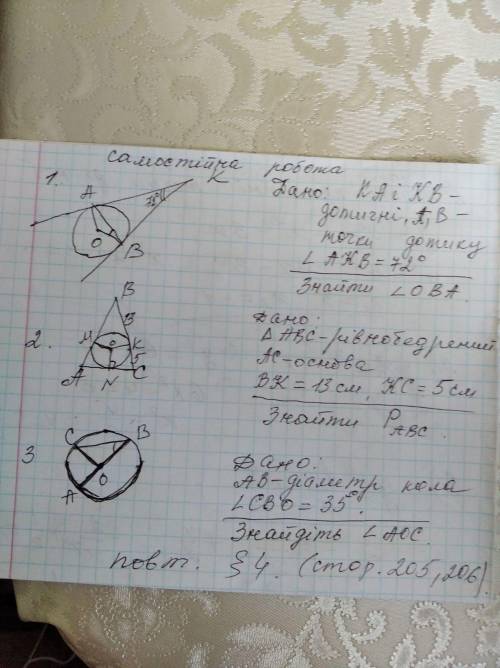 самостійна робота
1.
K
A
72°
O
B
Дано: KA і KB -
дотичні, A, B -
точки дотику
∠AKB = 72°
Знайти ∠OBA.
2.
B
13
M
O
K
5
A
N
C
Дано:
△ABC - рівнобедрений
AC - основа
BK = 13 см, KC = 5 см
Знайти P ABC.
3
C
B
O
A
Дано:
AB - діаметр кола
∠CBO = 35°.
Знайдіть ∠AOC.
повт. §4. (стор. 205, 206).